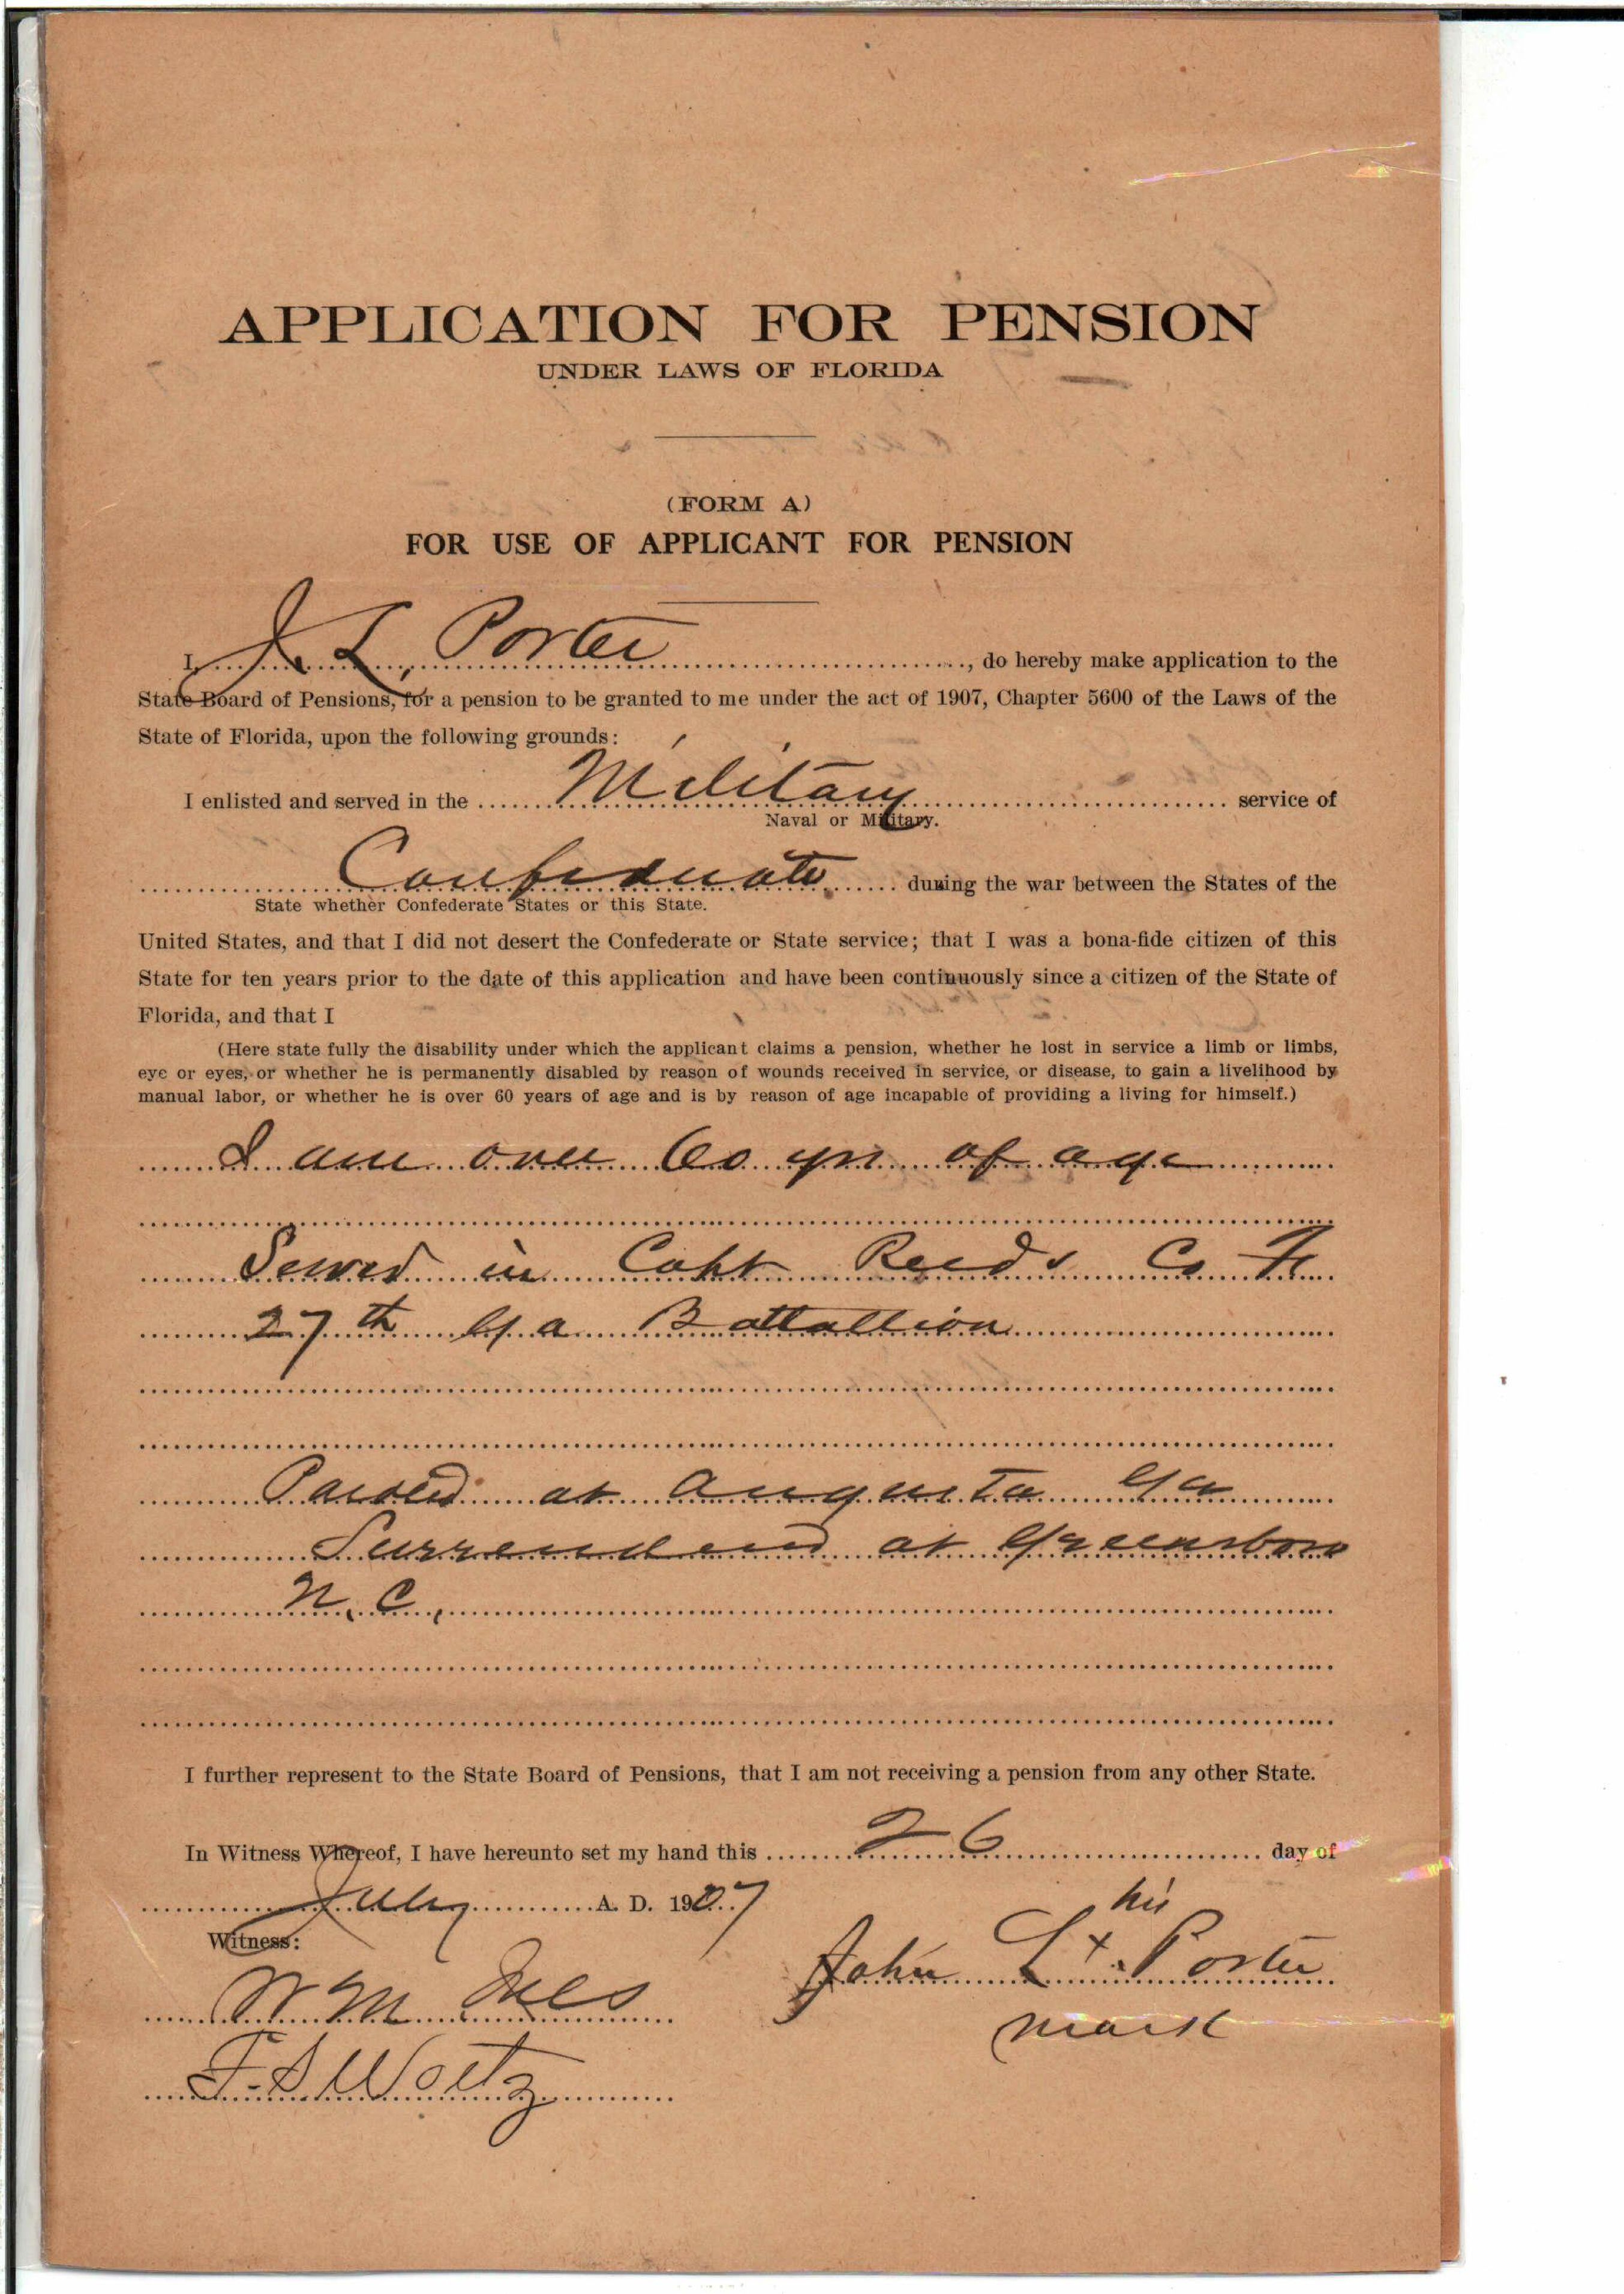 APPLICATION FOR PENSION
UNDER LAWS OF FLORIDA
(FORM A)
FOR USE OF APPLICANT FOR PENSION
I, J. L. Porter, do hereby make application to the
State Board of Pensions, for a pension to be granted to me under the act of 1907, Chapter 5600 of the Laws of the
State of Florida, upon the following grounds:
I enlisted and served in the Military service of
Naval or Military.
Confederate during the war between the States of the
State whether Confederate States or this State.
United States, and that I did not desert the Confederate or State service; that I was a bona-fide citizen of this
State for ten years prior to the date of this application and have been continuously since a citizen of the State of
Florida, and that I
(Here state fully the disability under which the applicant claims a pension, whether he lost in service a limb or limbs,
eye or eyes, or whether he is permanently disabled by reason of wounds received in service, or disease, to gain a livelihood by
manual labor, or whether he is over 60 years of age and is by reason of age incapable of providing a living for himself.)
I am over 60 yrs of age
Served in Capt Reeds Co
27th Ga Battallion
Paroled at Augusta Ga
Surrendered at Greensboro
N. C.
I further represent to the State Board of Pensions, that I am not receiving a pension from any other State.
In Witness Whereof, I have hereunto set my hand this 26 day of
July A. D. 1907
his
Witness:
John L x Porter
W. M. Ives
mark
F. S. Woltz